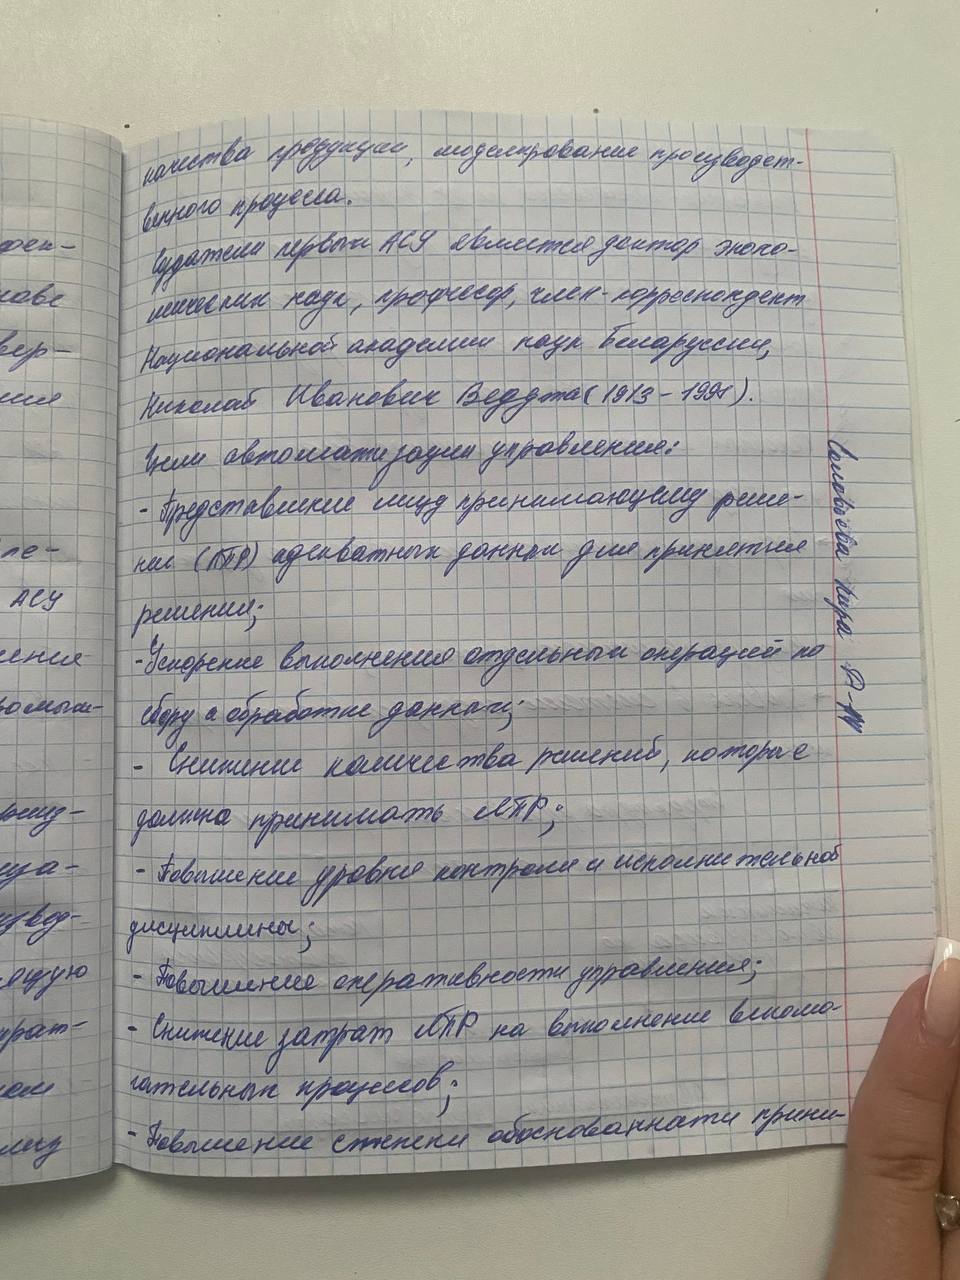 качества продукции, моделирование производст-
венного процесса.
Создателем первых АСУ является доктор эконо-
мических наук, профессор, член-корреспондент
Национальной академии наук Белоруссии,
Николай Иванович Ведута (1913-1998).
Цели автоматизации управления:
- Представление лицу принимающему реше-
ние (ЛПР) адекватных данных для принятия
решения;
- Ускорение выполнения отдельных операций по
сбору и обработке данных;
- Снижение количества решений, которые
должно принимать ЛПР;
- Повышение уровня контроля и исполнительной
дисциплины;
- Повышение оперативности управления;
- Снижение затрат ЛПР на выполнение вспомо-
гательных процессов;
- Повышение степени обоснованнати прини-
Соловьёва Кира
нове
вер-
АСУ
ения
ромыш-
ица-
извод-